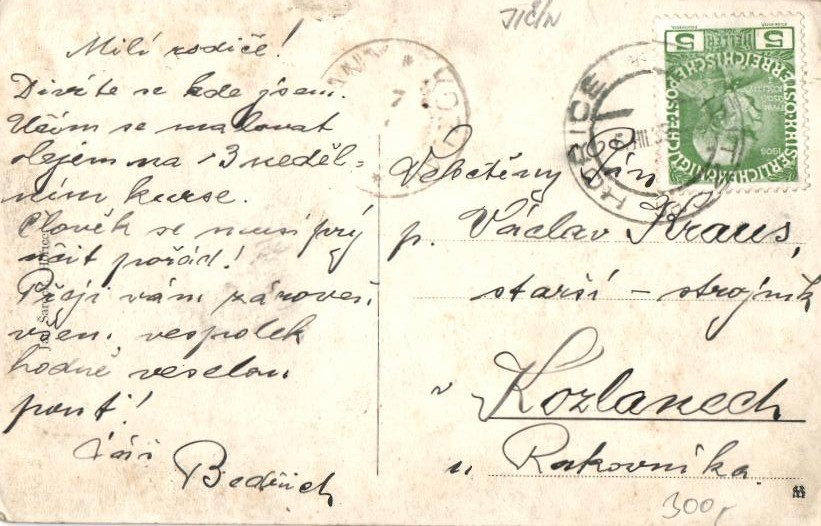 JIČÍN
Milí rodiče!
Divíte se kde jsem.
Učím se malovat
olejem na 3 neděl-
ním kurse.
Člověk se musí prý
učit pořád!
Přeji vám zároveň
všem, vespolek
hodně veselou
pouť!
Váš
Bedřich
Velectěný Pán
p. Václav Kraus,
starší - strojník
v Kozlanech
u Rakovníka
300,-
HOŘICE
5 HELLER 5
KAISERLICHE KÖNIGLICHE ÖSTERREICHISCHE POST
1908